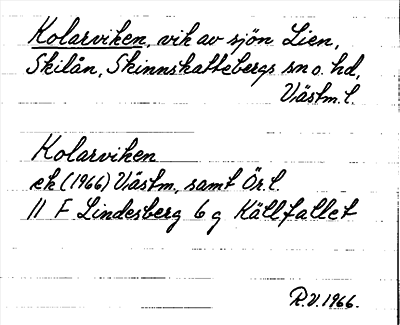 Kolarviken, vik av sjön Lien,
Skilån, Skinnskattebergs sn o. hd,
Västm. l.
Kolarviken
ek (1966) Västm, samt Ör. l.
11 F Lindesberg 6 g Källfallet
R.V. 1966.